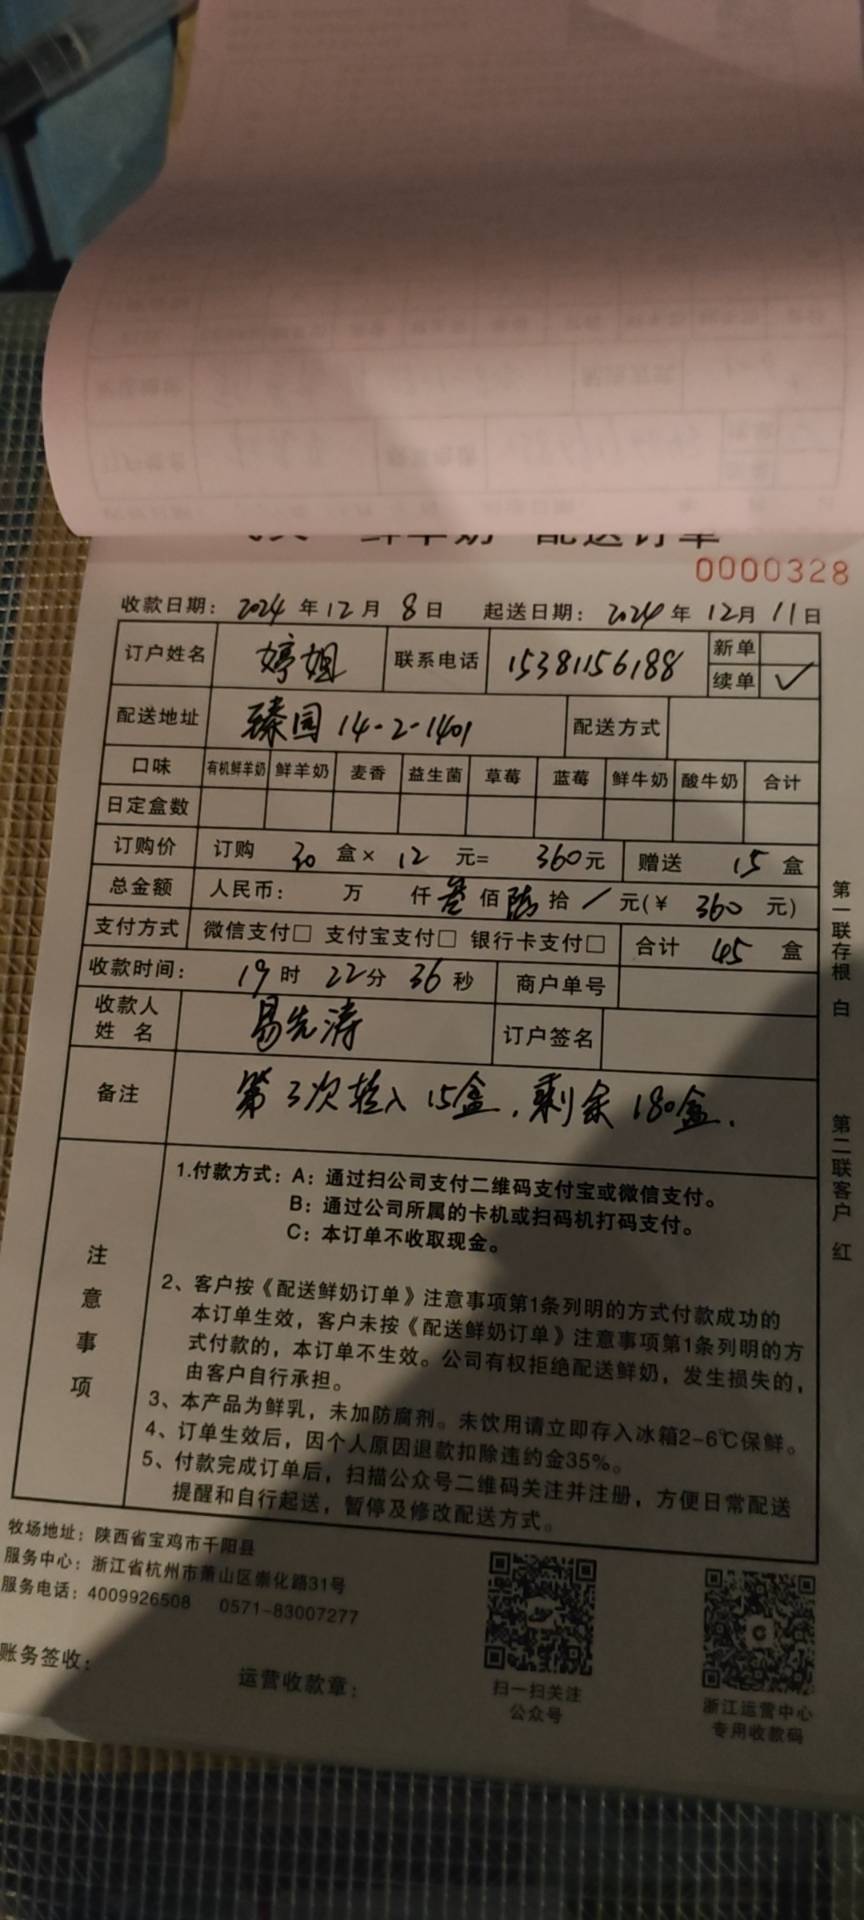 鲜羊奶 配送订单
0000328
收款日期：2024年12月8日 起送日期：2024年12月11日
订户姓名 婷姐 联系电话 15381156188 新单
续单 ✓
配送地址 臻园14-2-1401 配送方式
口味 有机鲜羊奶 鲜羊奶 麦香 益生菌 草莓 蓝莓 鲜牛奶 酸牛奶 合计
日定盒数
订购价 订购 30 盒× 12 元= 360元 赠送 15 盒
总金额 人民币： 万 仟 叁佰 陆拾 / 元(¥ 360 元)
支付方式 微信支付□ 支付宝支付□ 银行卡支付□ 合计 45 盒
收款时间： 19时 22分 36秒 商户单号
收款人姓名 易先涛 订户签名
备注 第3次转入15盒，剩余180盒.
注意事项
1.付款方式：A：通过扫公司支付二维码支付宝或微信支付。
B：通过公司所属的卡机或扫码机打码支付。
C：本订单不收取现金。
2、客户按《配送鲜奶订单》注意事项第1条列明的方式付款成功的
本订单生效，客户未按《配送鲜奶订单》注意事项第1条列明的方
式付款的，本订单不生效。公司有权拒绝配送鲜奶，发生损失的，
由客户自行承担。
3、本产品为鲜乳，未加防腐剂。未饮用请立即存入冰箱2-6℃保鲜。
4、订单生效后，因个人原因退款扣除违约金35%。
5、付款完成订单后，扫描公众号二维码关注并注册，方便日常配送
提醒和自行起送，暂停及修改配送方式。
第一联存根 白
第二联客户 红
牧场地址：陕西省宝鸡市千阳县
服务中心：浙江省杭州市萧山区崇化路31号
服务电话：4009926508 0571-83007277
账务签收：
运营收款章：
扫一扫关注
公众号
浙江运营中心
专用收款码